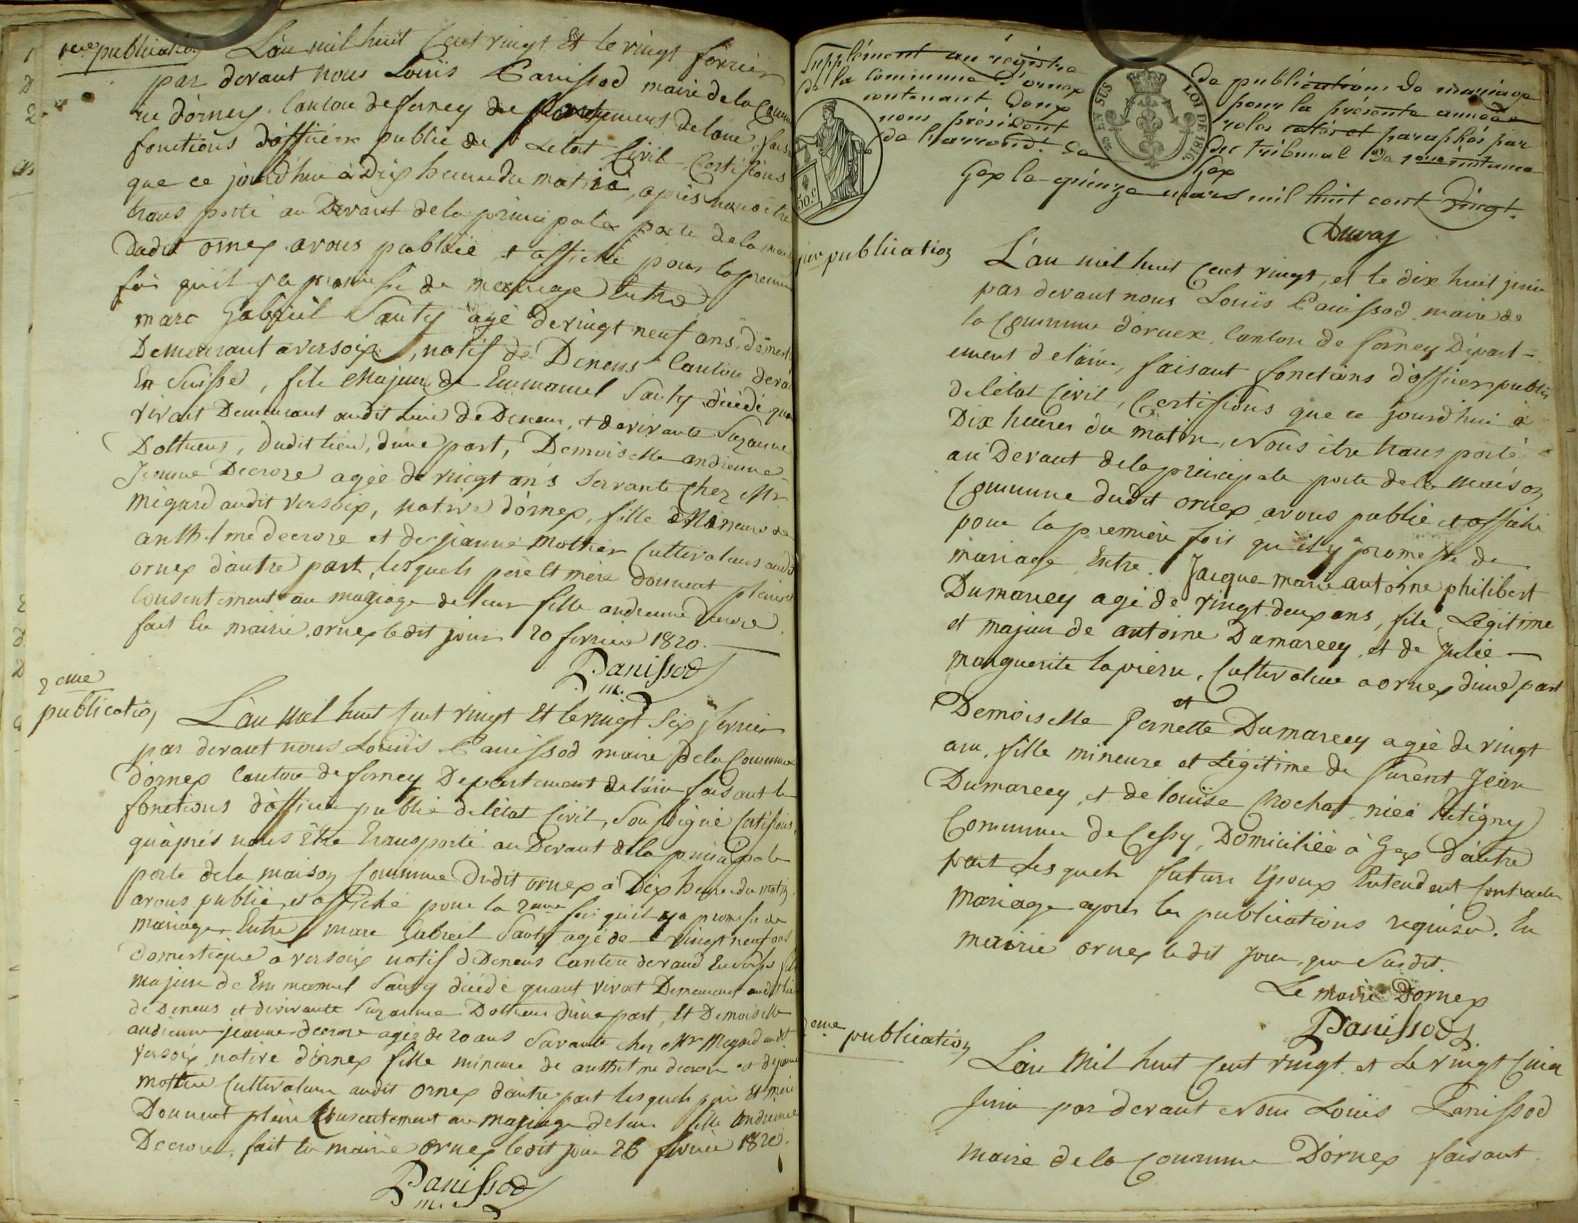 1ere publication
L'an mil huit Cent vingt Et le vingt fevrier
par devant nous Louis Panissod maire de la Commu
ne d'ornex. Canton de ferney departement de l'ain, fais
fonctions d'officier public de l'etat Civil Certifions
que ce jourd'hui à Dix heures du matin, après nous être
trans porté au Devant de la principale porte de la mai
dudit ornex avons publié et affiché pour la premier
fois qu'il y a promesse de mariage Entre
marc Gabriel Sauty agé de vingt neuf ans, domest
Demeurant a versoix, natif de Denens Canton de va
En Suisse, fils Majeur de Emmanuel Sauty décédé qua
vivait Demeurant audit lieu de Denens, et de vivante Suzanne
Dothens, dudit lieu, d'une part, Demoiselle andrienne
Jeanne Decroze agée de vingt ans Servante Chez Mr
Mégard audit versoix, native d'ornex, fille Mineure de
anthelme decroze et de jeanne Mothier Cultivateurs audit
ornex d'autre part, lesquels père Et mère donnent pleine
Consentement au mariage de leur fille andrienne Decroze
fait En mairie ornex ledit jour 20 fevrier 1820.
Panissod
m.
2eme
publication
L'an Mil huit Cent vingt Et le vingt Six fevrier
par devant nous Louis Panissod maire de la Commune
d'ornex Canton de ferney Departement de l'ain faisant le
fonctions d'officier public de l'état Civil, Soussigné Certifions
qu'après nous Être transporté au Devant de la principale
porte de la maison Commune Dudit ornex à Dix heure du matin
avons publié, et affiché pour la 2eme fois qu'il y a promesse de
mariage Entre marc Gabriel Sauty agé de vingt neuf ans
domestique a versoix natif de Denens Canton de vaud En suisse fils
majeur de Emmanuel Sauty décédé quant vivait Demeurant audit lieu
de Denens et de vivante Suzanne Dothens d'une part, Et Demoiselle
andrienne jeanne decroze agée de 20 ans Servante chez Mr Megard audit
versoix, native d'ornex fille mineure de anthelme decroze et de jeanne
mothier Cultivateurs audit ornex d'autre part lesquels père Et mère
Donnent pleine Consentement au mariage de leur fille andrienne
Decroze, fait En mairie ornex ledit jour 26 fevrier 1820.
Panissod
m.
Supplément au régistre
de la commune d'ornex
contenant deux
nous président
de l'arrond.t de
de publications de mariage
pour la présente année
roles cotés et paraphés par
du tribunal de 1ere instance
Gex
Gex le quinze mars mil huit cent vingt.
Duvaj
1ere publication
L'an mil huit Cent vingt, et le dix huit juin
par devant nous Louis Panissod, maire de
la Commune d'ornex. Canton de ferney Départ-
ement de l'ain, faisant fonctions d'officier public
de l'état Civil, Certifions que ce jourd'hui à
Dix heures du matin, Nous être transporté
au Devant de la principale porte de la maison
Commune dudit ornex avons publié et affiché
pour la première fois qu'il y promesse de
mariage Entre. Jacque marie antoine philibert
Dumarcey agé de vingt deux ans, fils Légitime
et majeur de antoine Dumarcey, et de Julie
marguerite lapierre, Cultivateur a ornex d'une part
et
Demoiselle Pernette Dumarcey agée de vingt
ans, fille mineure et Légitime de Surent Jean
Dumarcey, et de louise Crochat née à Petigny
Commune de Cessy, Domiciliée à Gex d'autre
part Lesquels futurs Epoux Entendent Contracter
Mariage après les publications requises. En
mairie ornex le dit Jour, que Susdit.
Le maire D'ornex
Panissod
2eme publication
L'an Mil huit Cent vingt et Le vingt Cinq
Juin par devant Nous Louis Panissod
Maire de la Commune D'ornex faisant